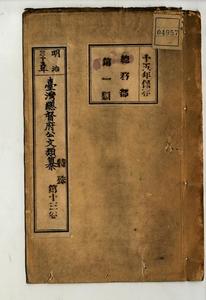 04957
十五年保存
總務部
第一類
明治三十年
臺灣總督府公文類纂
特殊
第十三卷